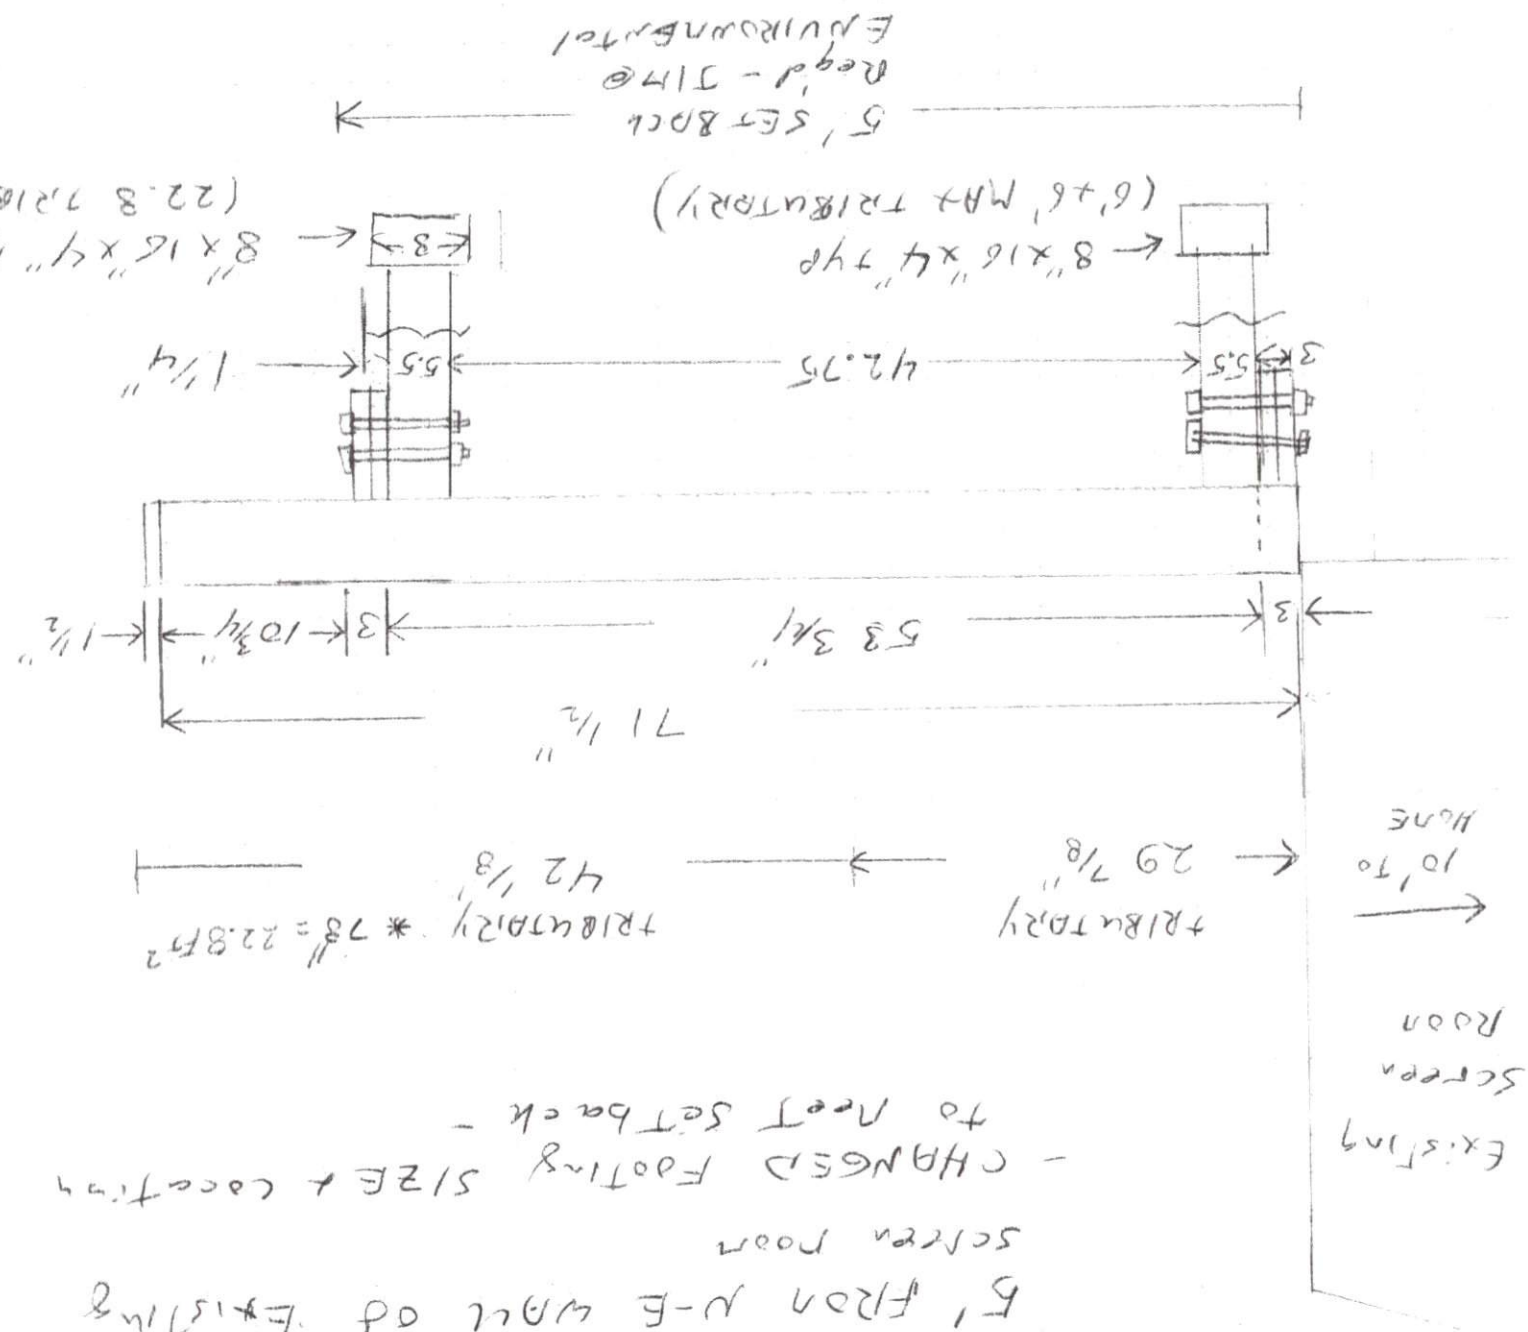 5' FROM N-E WALL OF EXISTING
SCREEN ROOM
- CHANGED FOOTING SIZE & LOCATION
TO MEET SETBACK -
EXISTING
SCREEN
ROOM
10' TO
HOME
TRIBUTARY
29 7/8"
TRIBUTARY * 78" = 22.8 FT²
42 1/8"
71 1/2"
3
53 3/4"
3
10 3/4"
1 1/2"
3
5.5
42.75
5.5
1 1/4"
8"x16"x4" typ
(6'x6' MAX TRIBUTARY)
8
8"x16"x4"
(22.8
5' SETBACK
Req'd - JIM @
ENVIRONMENTAL